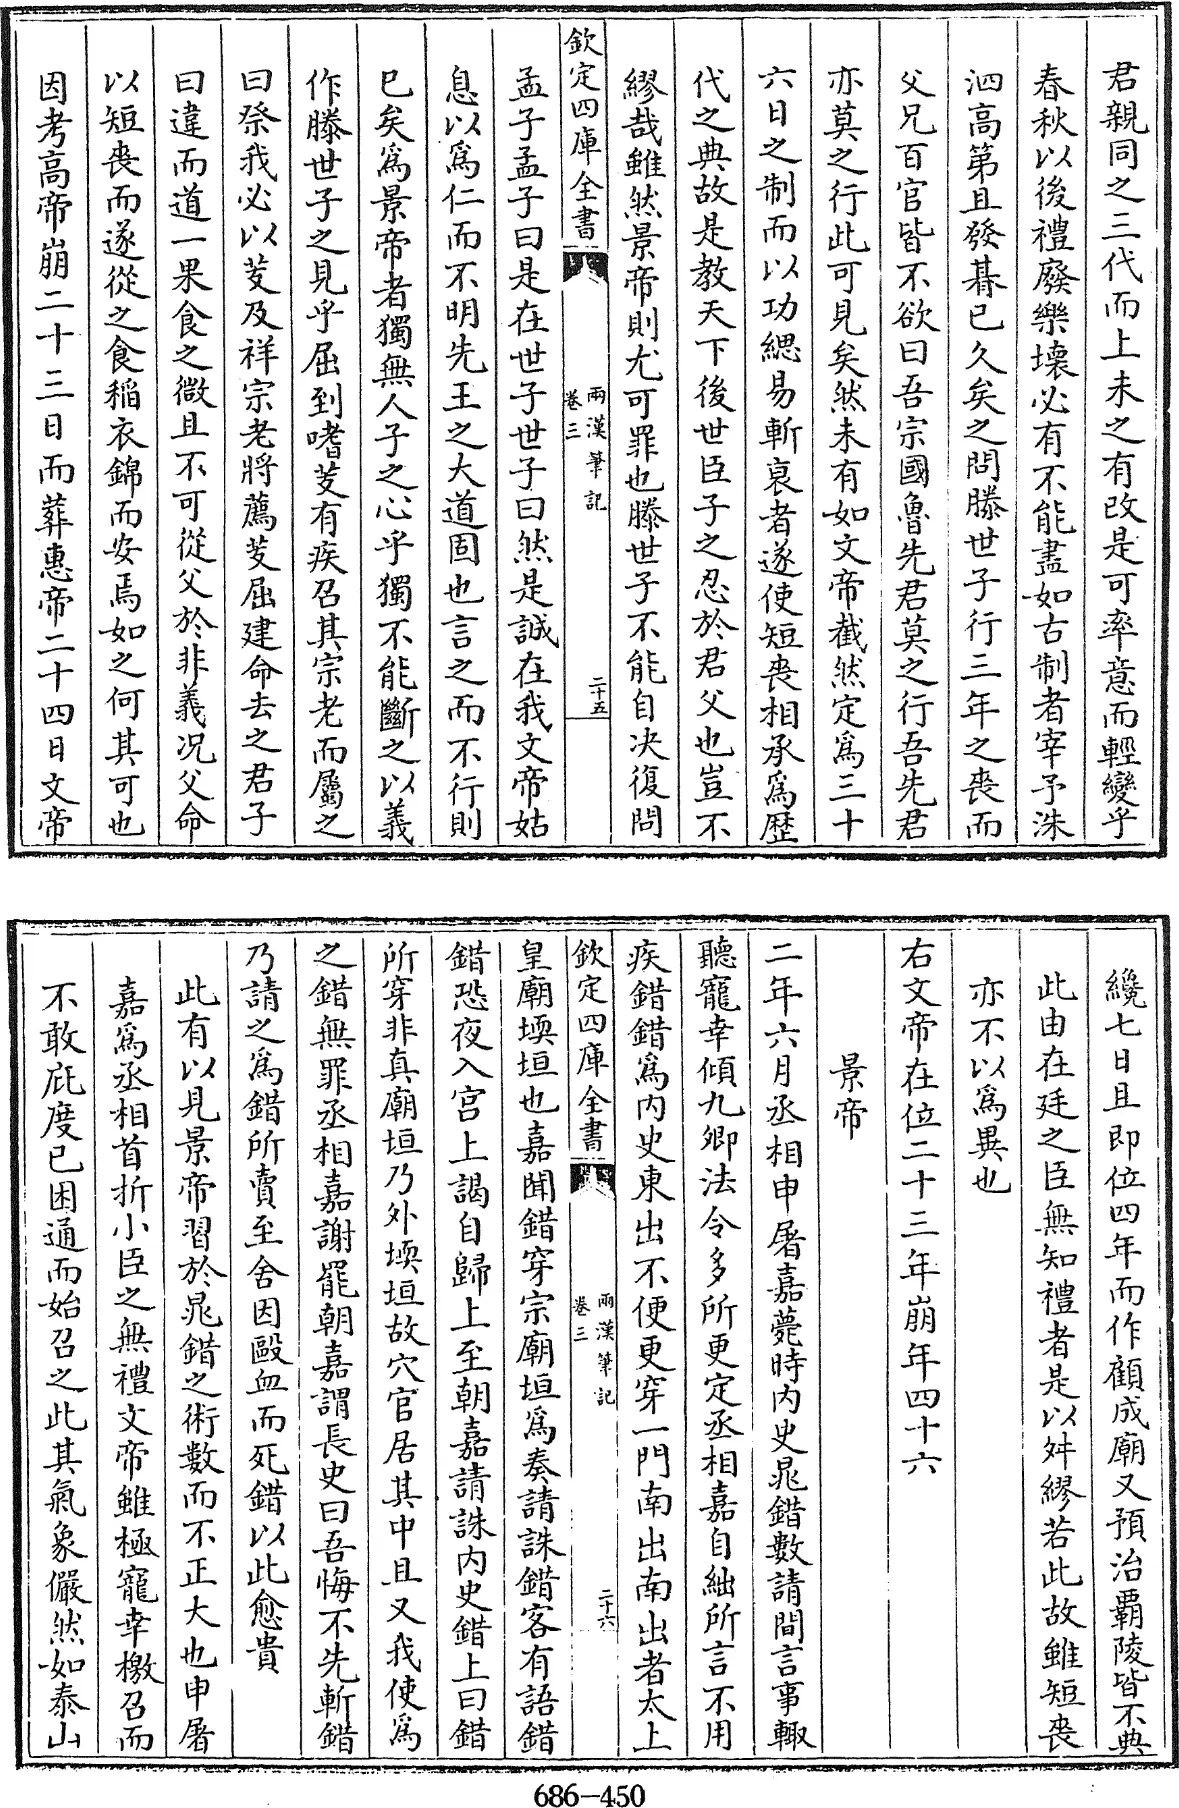 君親同之三代而上未之有改是可率意而輕變乎
春秋以後禮廢樂壞必有不能盡如古制者宰予洙
泗高第且發朞已久矣之問滕世子行三年之喪而
父兄百官皆不欲曰吾宗國魯先君莫之行吾先君
亦莫之行此可見矣然未有如文帝截然定爲三十
六日之制而以功緦易斬衰者遂使短喪相承爲歴
代之典故是教天下後世臣子之忍於君父也豈不
繆哉雖然景帝則尤可罪也滕世子不能自决復問
欽定四庫全書
兩漢筆記
卷三
二十五
孟子孟子曰是在世子世子曰然是誠在我文帝姑
息以爲仁而不明先王之大道固也言之而不行則
已矣爲景帝者獨無人子之心乎獨不能斷之以義
作滕世子之見乎屈到嗜芰有疾召其宗老而屬之
曰祭我必以芰及祥宗老將薦芰屈建命去之君子
曰違而道一果食之微且不可從父於非義况父命
以短喪而遂從之食稻衣錦而安焉如之何其可也
因考高帝崩二十三日而葬惠帝二十四日文帝
纔七日且即位四年而作顧成廟又預治霸陵皆不典
此由在廷之臣無知禮者是以舛繆若此故雖短喪
亦不以爲異也
右文帝在位二十三年崩年四十六
景帝
二年六月丞相申屠嘉薨時内史鼂錯數請間言事輙
聽寵幸傾九卿法令多所更定丞相嘉自絀所言不用
疾錯錯爲内史東出不便更穿一門南出南出者太上
欽定四庫全書
兩漢筆記
卷三
二十六
皇廟堧垣也嘉聞錯穿宗廟垣爲奏請誅錯客有語錯
錯恐夜入宫上謁自歸上至朝嘉請誅内史錯上曰錯
所穿非真廟垣乃外堧垣故宂官居其中且又我使爲
之錯無罪丞相嘉謝罷朝嘉謂長史曰吾悔不先斬錯
乃請之爲錯所賣至舍因毆血而死錯以此愈貴
此有以見景帝習於鼂錯之術數而不正大也申屠
嘉爲丞相首折小臣之無禮文帝雖極寵幸檄召而
不敢庇度已困通而始召之此其氣象儼然如泰山
686-450